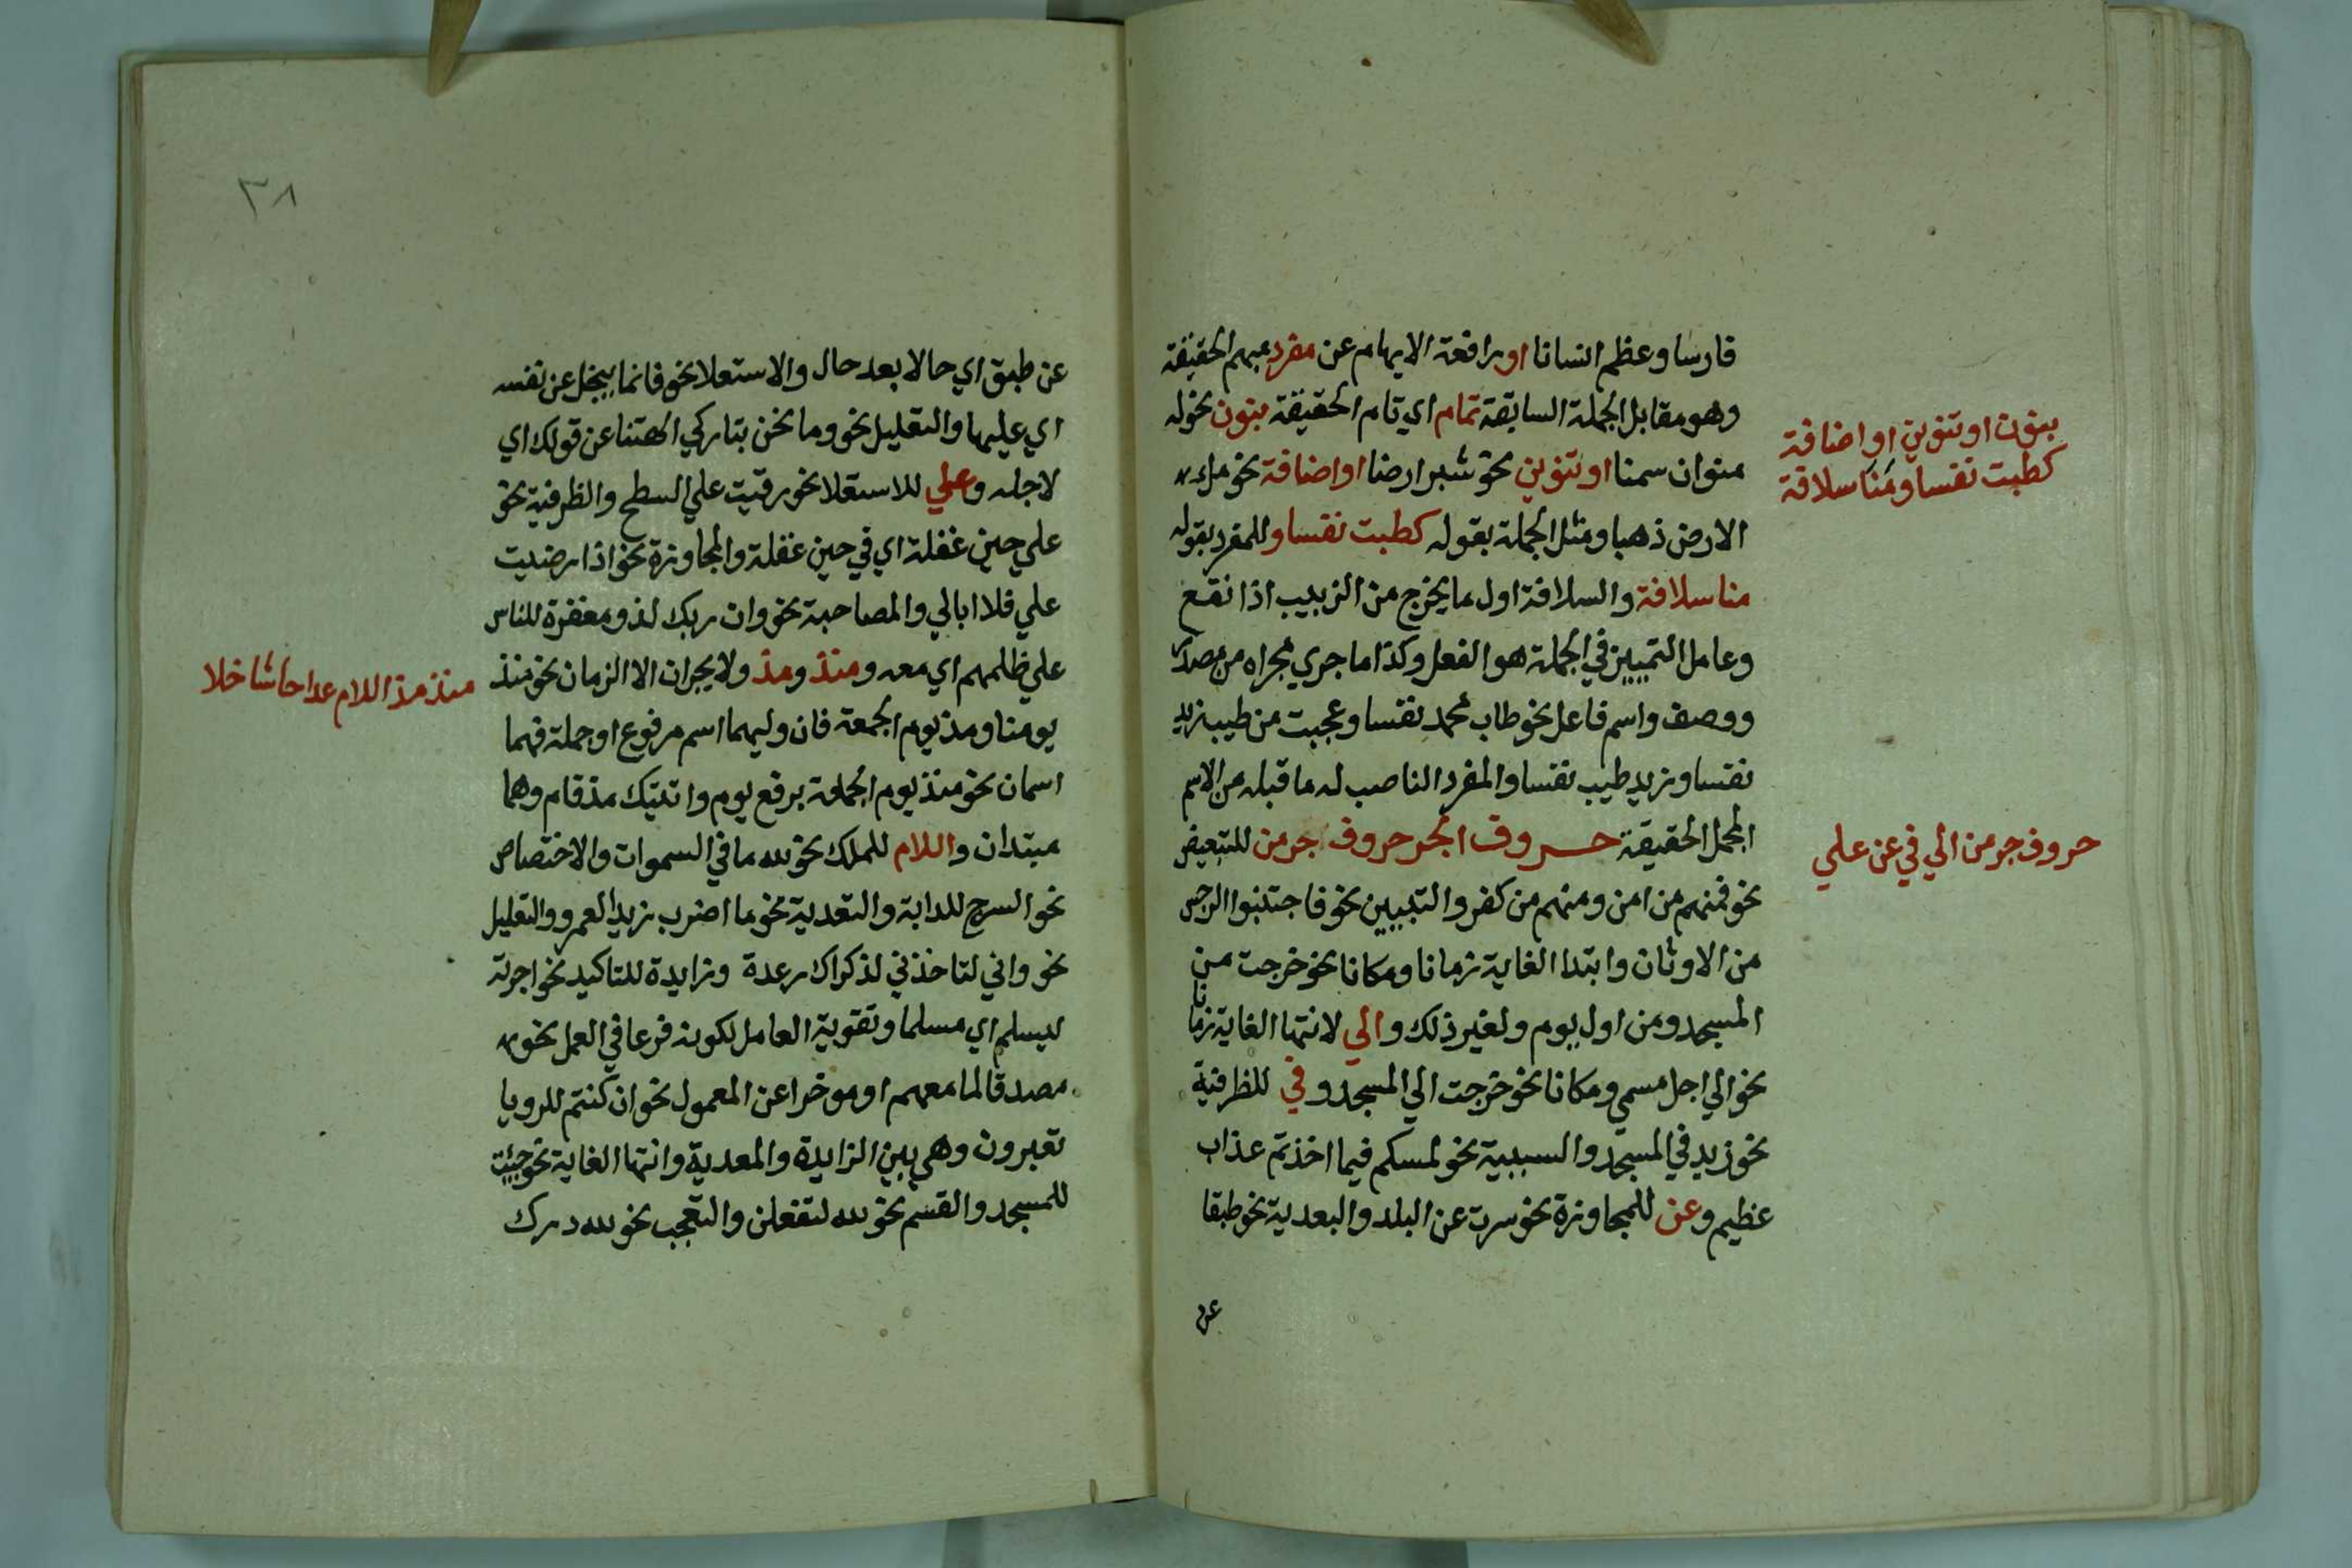 فارسا وعظم انسانا او رافعة الابهام عن مفرد مبهم الحقيقة
وهو مقابل الجملة السابقة تمام اي تام الحقيقة بنون نحو له
منوان سمنا او تنوين نحو شبر ارضا او اضافة نحو ملء
الارض ذهبا ومثل الجملة بقوله كطبت نفسا وللمفرد بقوله
منا سلافة والسلافة اول ما يخرج من الزبيب اذا نقع
وعامل التمييز في الجملة هو الفعل وكذا ما جري مجراه من مصدر
ووصف واسم فاعل نحو طاب محمد نفسا وعجبت من طيب زيد
نفسا وزيد طيب نفسا والمفرد الناصب له ما قبله من الاسم
المجمل الحقيقة حروف الجر حروف جر من للتبعيض
نحو فمنهم من امن ومنهم من كفر والتبيين نحو فاجتنبوا الرجس
من الاوثان وابتدا الغاية زمانا ومكانا نحو خرجت من
المسجد ومن اول يوم ولغير ذلك والي لانتها الغاية زمانا
نحو الي اجل مسمي ومكانا نحو خرجت الي المسجد وفي للظرفية
نحو زيد في المسجد والسببية نحو لمسكم فيما اخذتم عذاب
عظيم وعن للمجاوزة نحو سرت عن البلد والبعدية نحو طبقا
عن
بنون او تنوين او اضافة
كطبت نفسا ومنا سلافة
حروف جر من الي في عن علي
٣٨
عن طبق اي حالا بعد حال والاستعلا نحو فانما يبخل عن نفسه
اي عليها والتعليل نحو وما نحن بتاركي الهتنا عن قولك اي
لاجله وعلي للاستعلا نحو رقيت علي السطح والظرفية نحو
علي حين غفلة اي في حين غفلة والمجاوزة نحو اذا رضيت
علي فلا ابالي والمصاحبة نحو وان ربك لذو مغفرة للناس
علي ظلمهم اي معه ومنذ ومذ ولا يجران الا الزمان نحو منذ
يومنا ومذ يوم الجمعة فان وليهما اسم مرفوع او جملة فهما
اسمان نحو منذ يوم الجمعة برفع يوم واتيتك مذ قام وهما
مبتدان واللام للملك نحو لله ما في السموات والاختصاص
نحو السرج للدابة والتعدية نحو ما اضرب زيدا لعمرو والتعليل
نحو واني لتاخذني لذكراك رعدة وزايدة للتاكيد نحو اجرته
ليسلم اي مسلما وتقوية العامل لكونه فرعا في العمل نحو
مصدقا لما معهم او موخرا عن المعمول نحو ان كنتم للرويا
تعبرون وهي بين الزايدة والمعدية وانتها الغاية نحو جيئت
للمسجد والقسم نحو لله لتفعلن والتعجب نحو لله درك
منذ مذ اللام عدا حاشا خلا